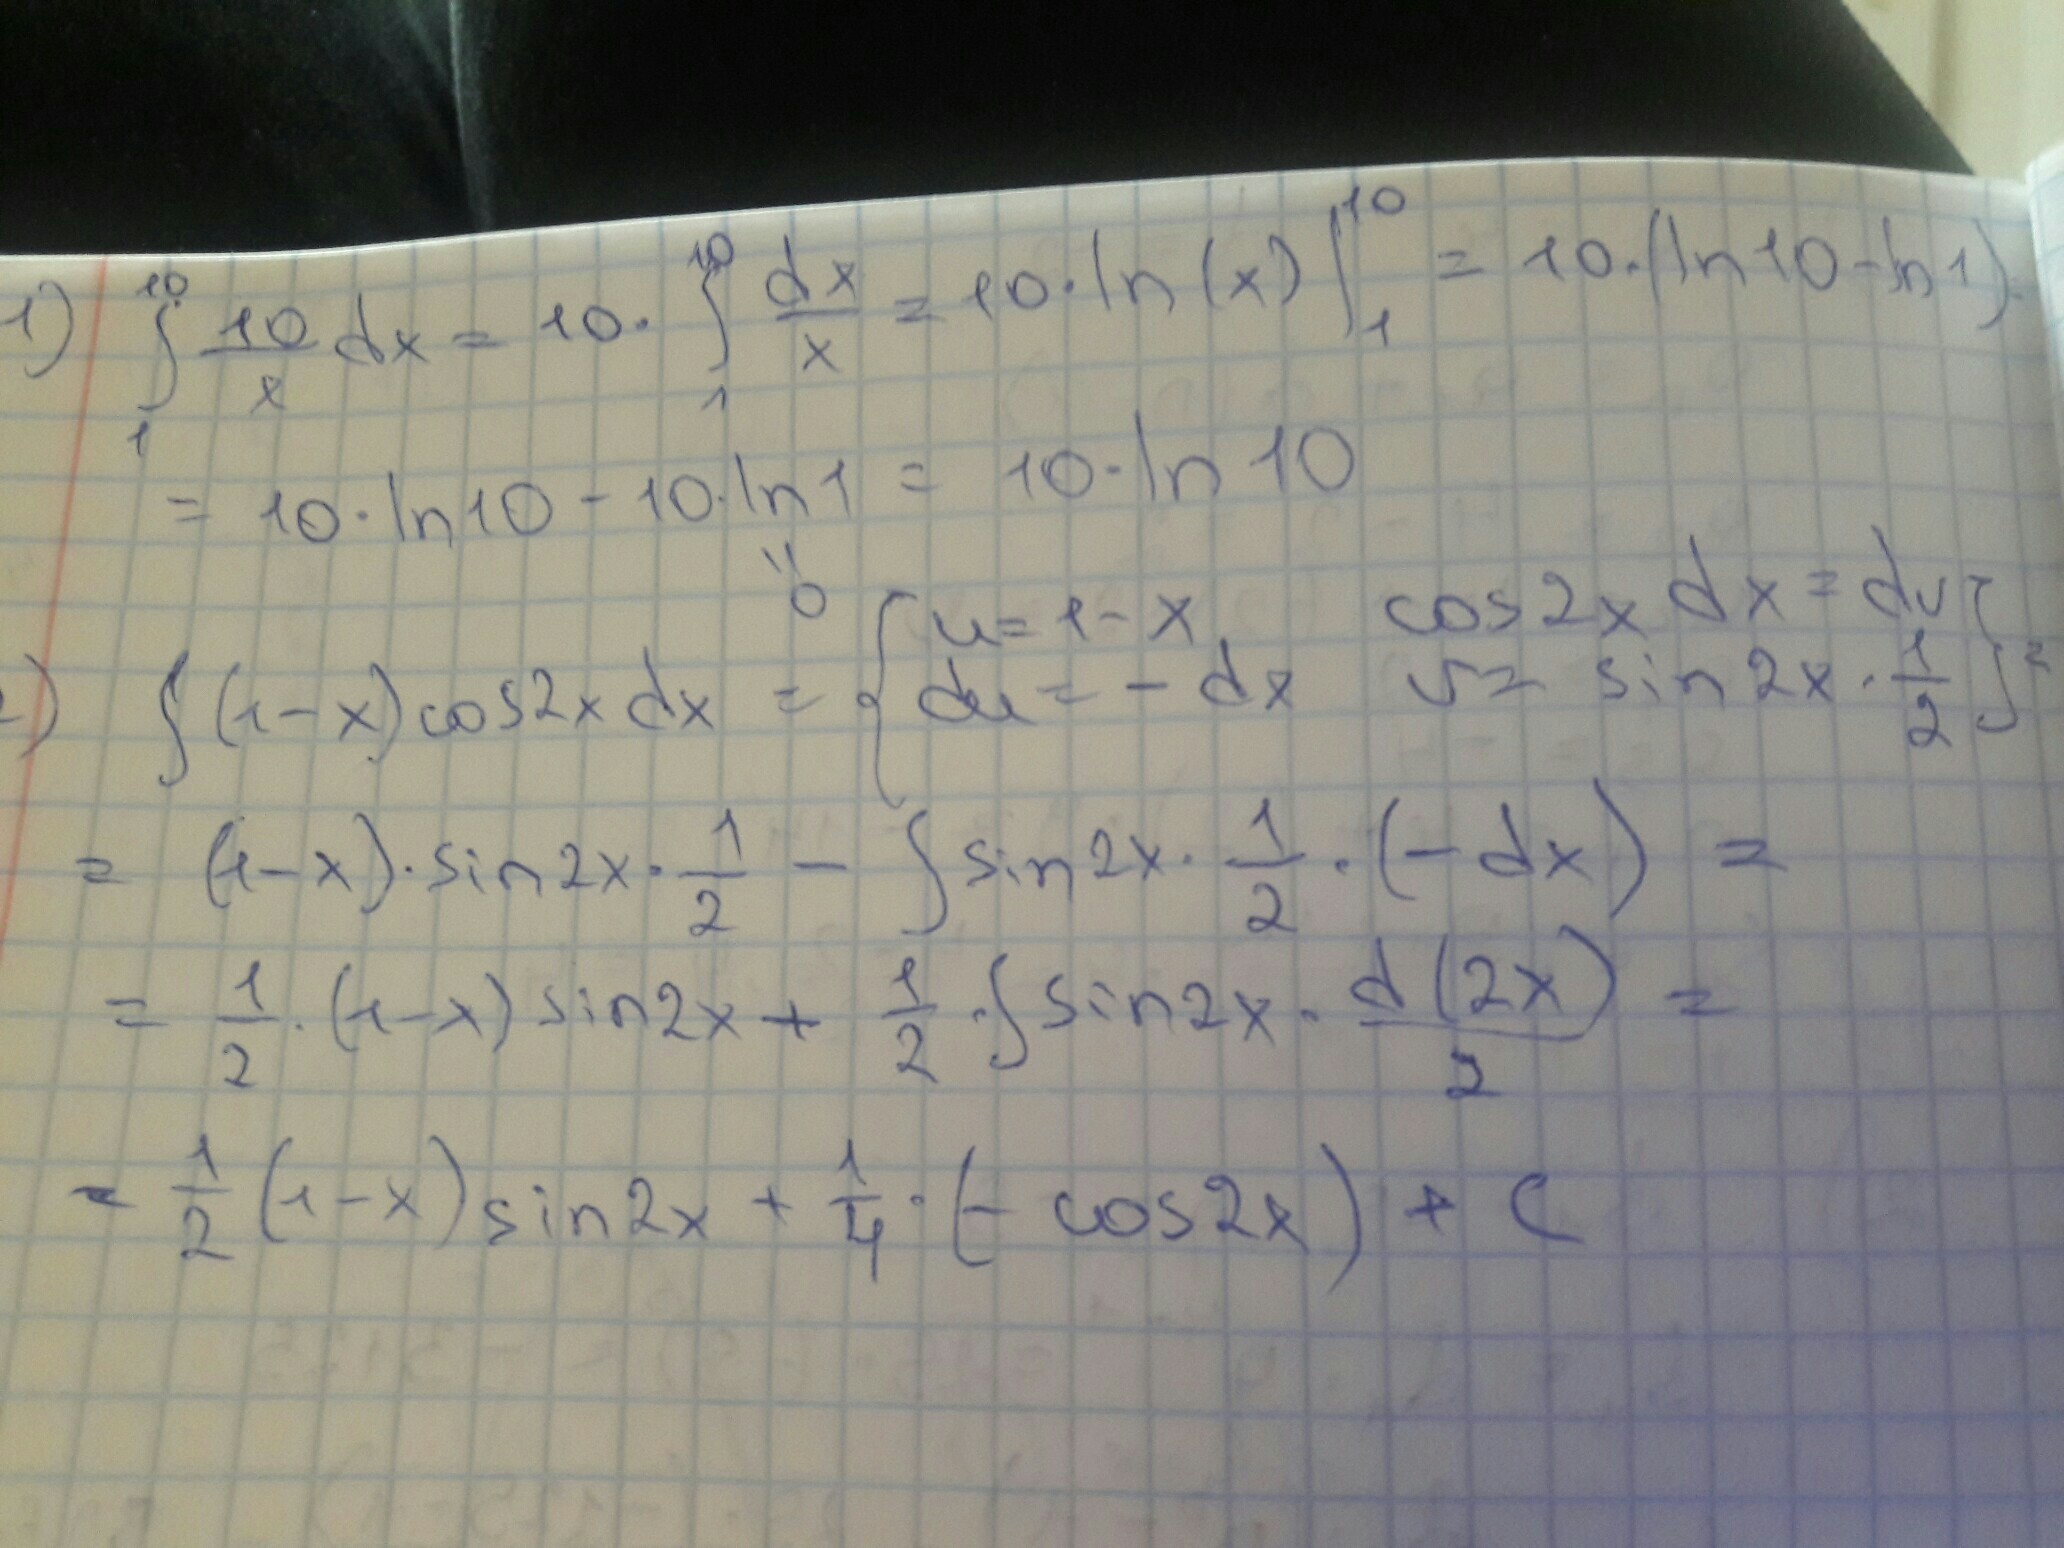 1) ∫₁¹⁰ 10/x dx = 10· ∫₁¹⁰ dx/x = 10·ln(x) |₁¹⁰ = 10·(ln10-ln1)=
= 10·ln10 - 10·ln1 = 10·ln10
"0
2) ∫(1-x)cos2x dx = { u=1-x, cos2x dx = dv
du = -dx v= sin2x·1/2 } =
= (1-x)·sin2x·1/2 - ∫sin2x·1/2·(-dx) =
= 1/2·(1-x)sin2x + 1/2·∫sin2x·d(2x)/2 =
= 1/2(1-x)sin2x + 1/4·(-cos2x) + C